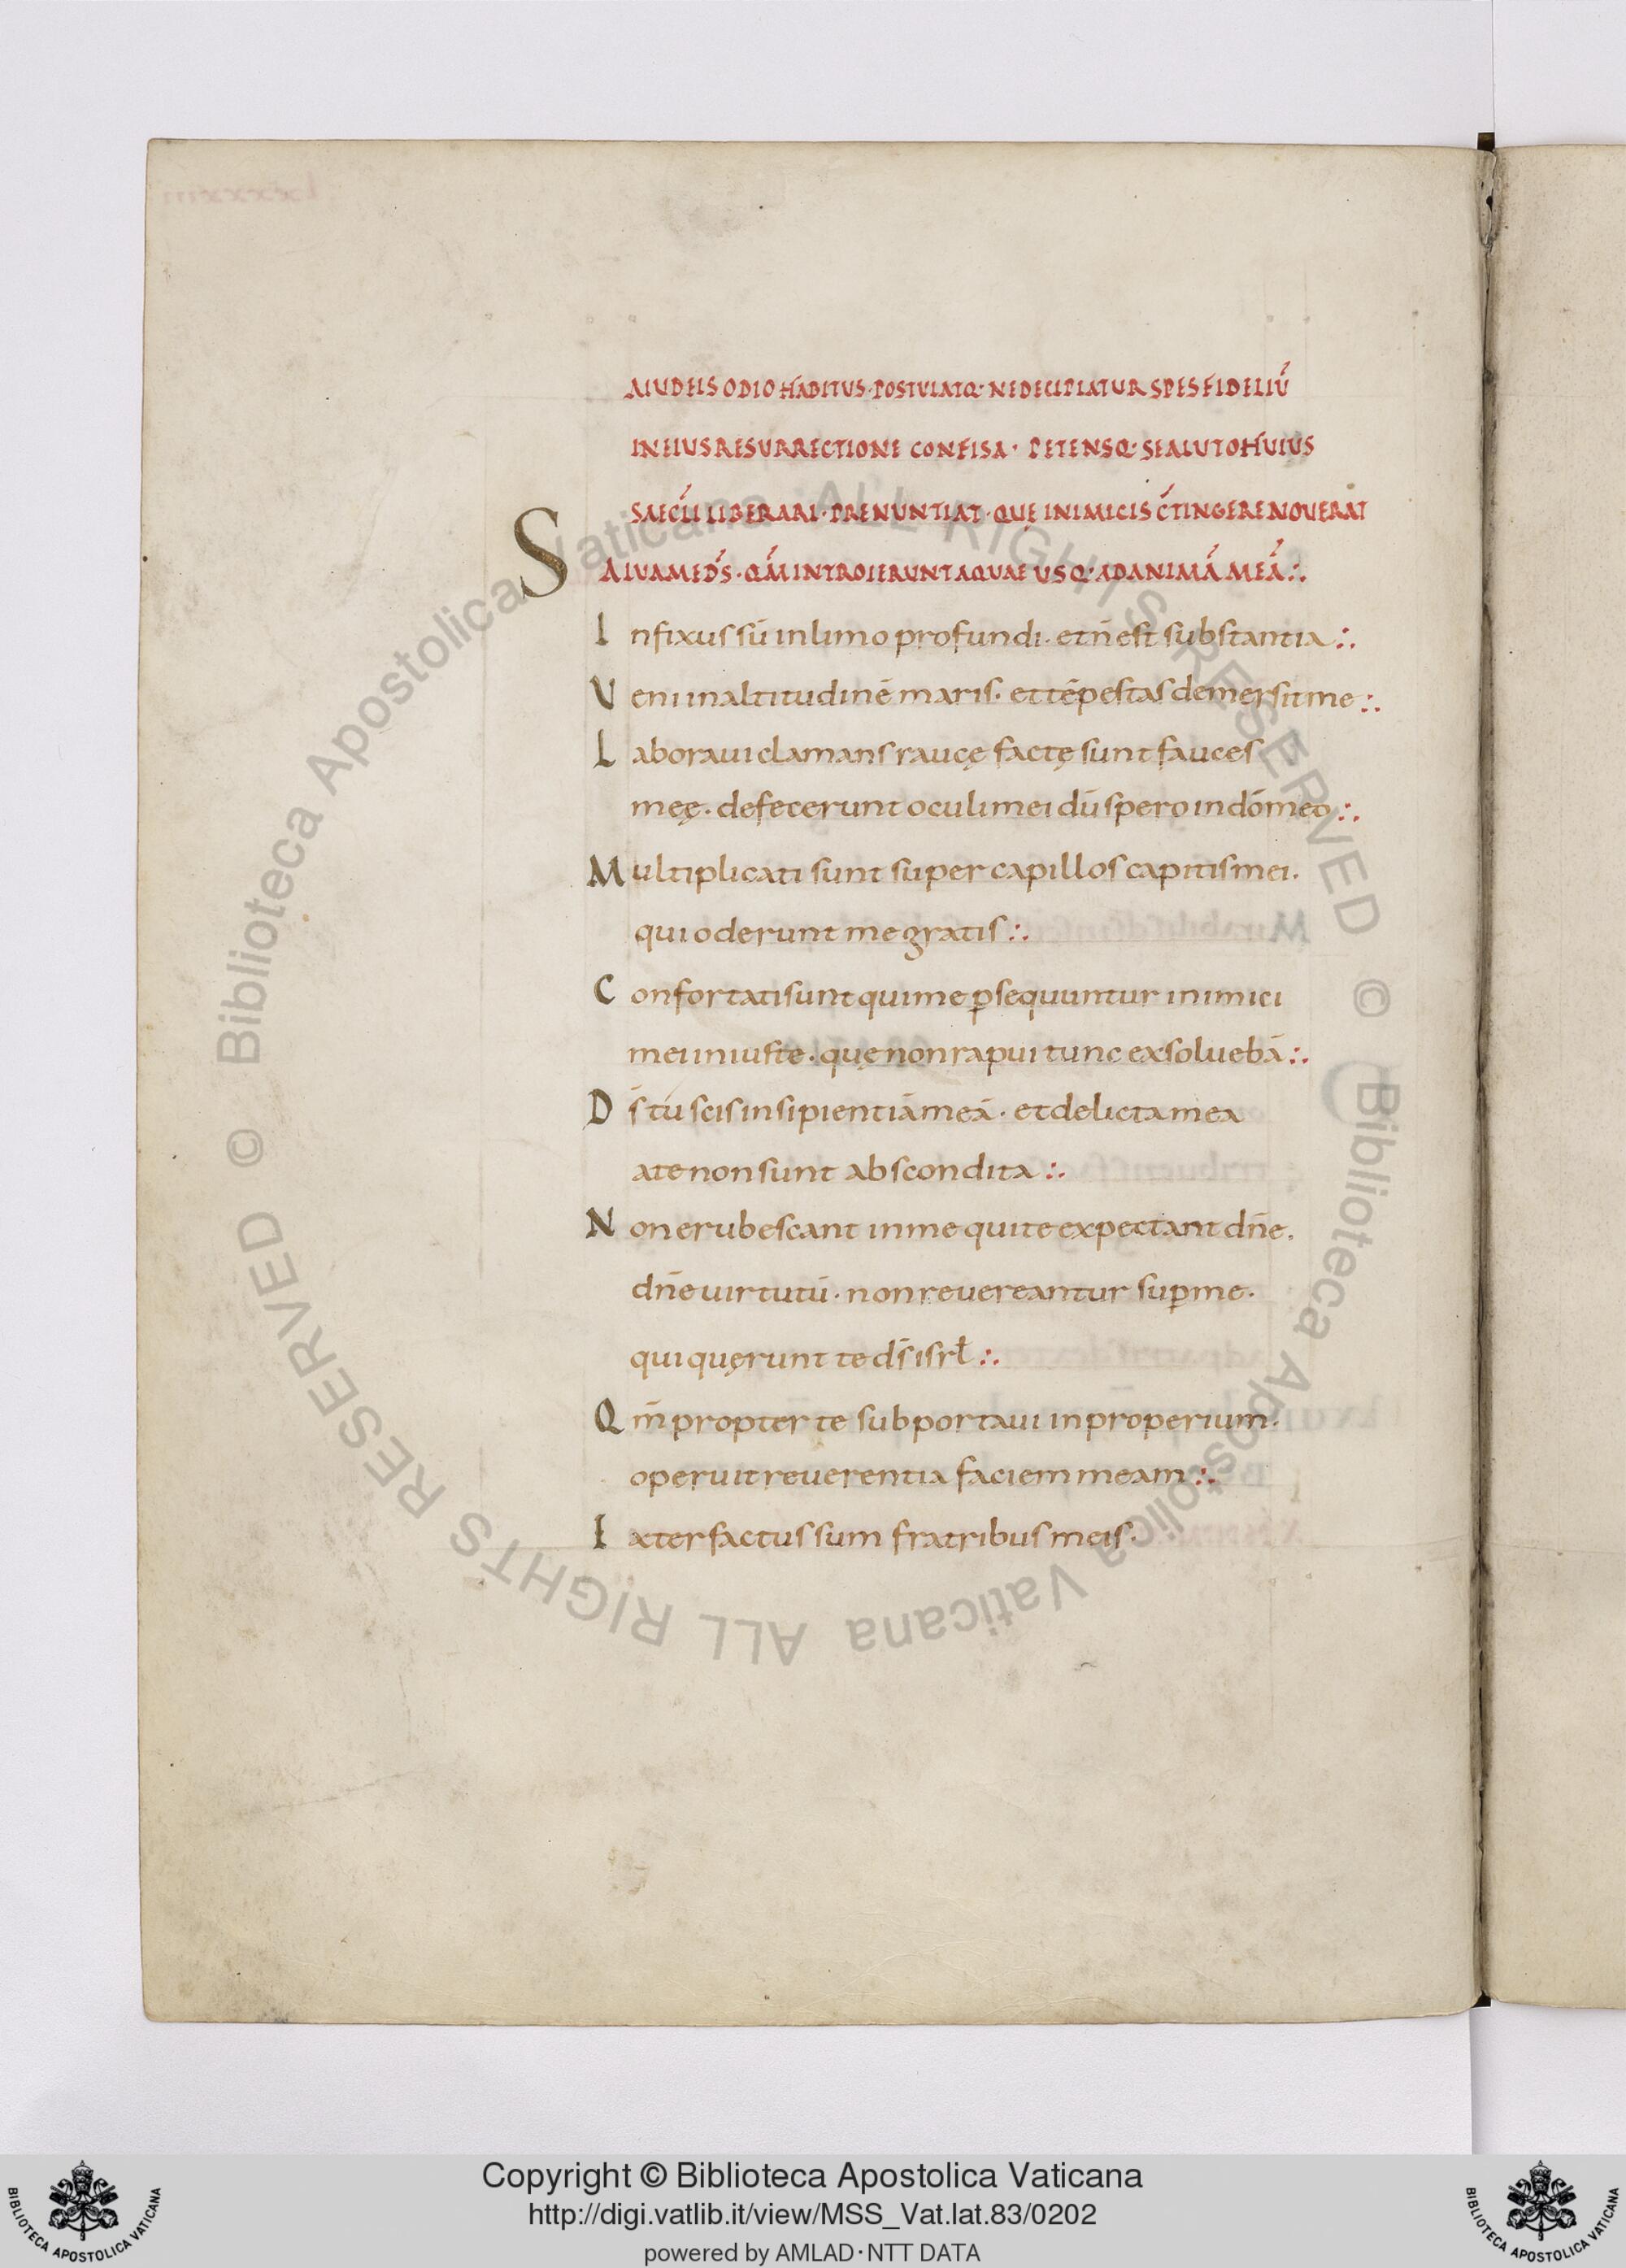 AIUDEIS ODIO HABITUS · POSTULATQ: NE DECIPIATUR SPES FIDELIŪ
IN EIUS RESURRECTIONE CONFISA · PETENSQ: SE A LUTO HUIUS
SAECL̄I LIBERARI · PRENUNTIAT · QUĘ INIMICIS C̄TINGERE NOVERAT
SALVA ME DS̄ · QM̄ INTROIERUNT AQUAE USQ: AD ANIMĀ MEĀ ∴
Infixus sū in limo profundi · et n̄ est substantia ∴
Veni in altitudinē maris · et tēpestas demersit me ∴
Laboravi clamans raucę factę sunt fauces
meę · defecerunt oculi mei dū spero in dō meo ∴
Multiplicati sunt super capillos capitis mei ·
qui oderunt me gratis ∴
Confortati sunt qui me ꝑsequuntur inimici
mei iniuste · quę non rapui tunc exsoluebā ∴
Ds̄ tu scis insipientiā meā · et delicta mea
a te non sunt abscondita ∴
Non erubescant in me qui te expectant dn̄e ·
dn̄e uirtutū · non revereantur suꝑ me ·
qui quęrunt te ds̄ isrł ∴
Qm̄ propter te subportavi inproperium ·
operuit reuerentia faciem meam ∴
Exter factus sum fratribus meis ·
© Biblioteca Apostolica Vaticana ALL RIGHTS RESERVED © Biblioteca Apostolica Vaticana ALL RIGHTS RESERVED
Copyright © Biblioteca Apostolica Vaticana
http://digi.vatlib.it/view/MSS_Vat.lat.83/0202
powered by AMLAD·NTT DATA
BIBLIOTECA APOSTOLICA VATICANA
BIBLIOTECA APOSTOLICA VATICANA